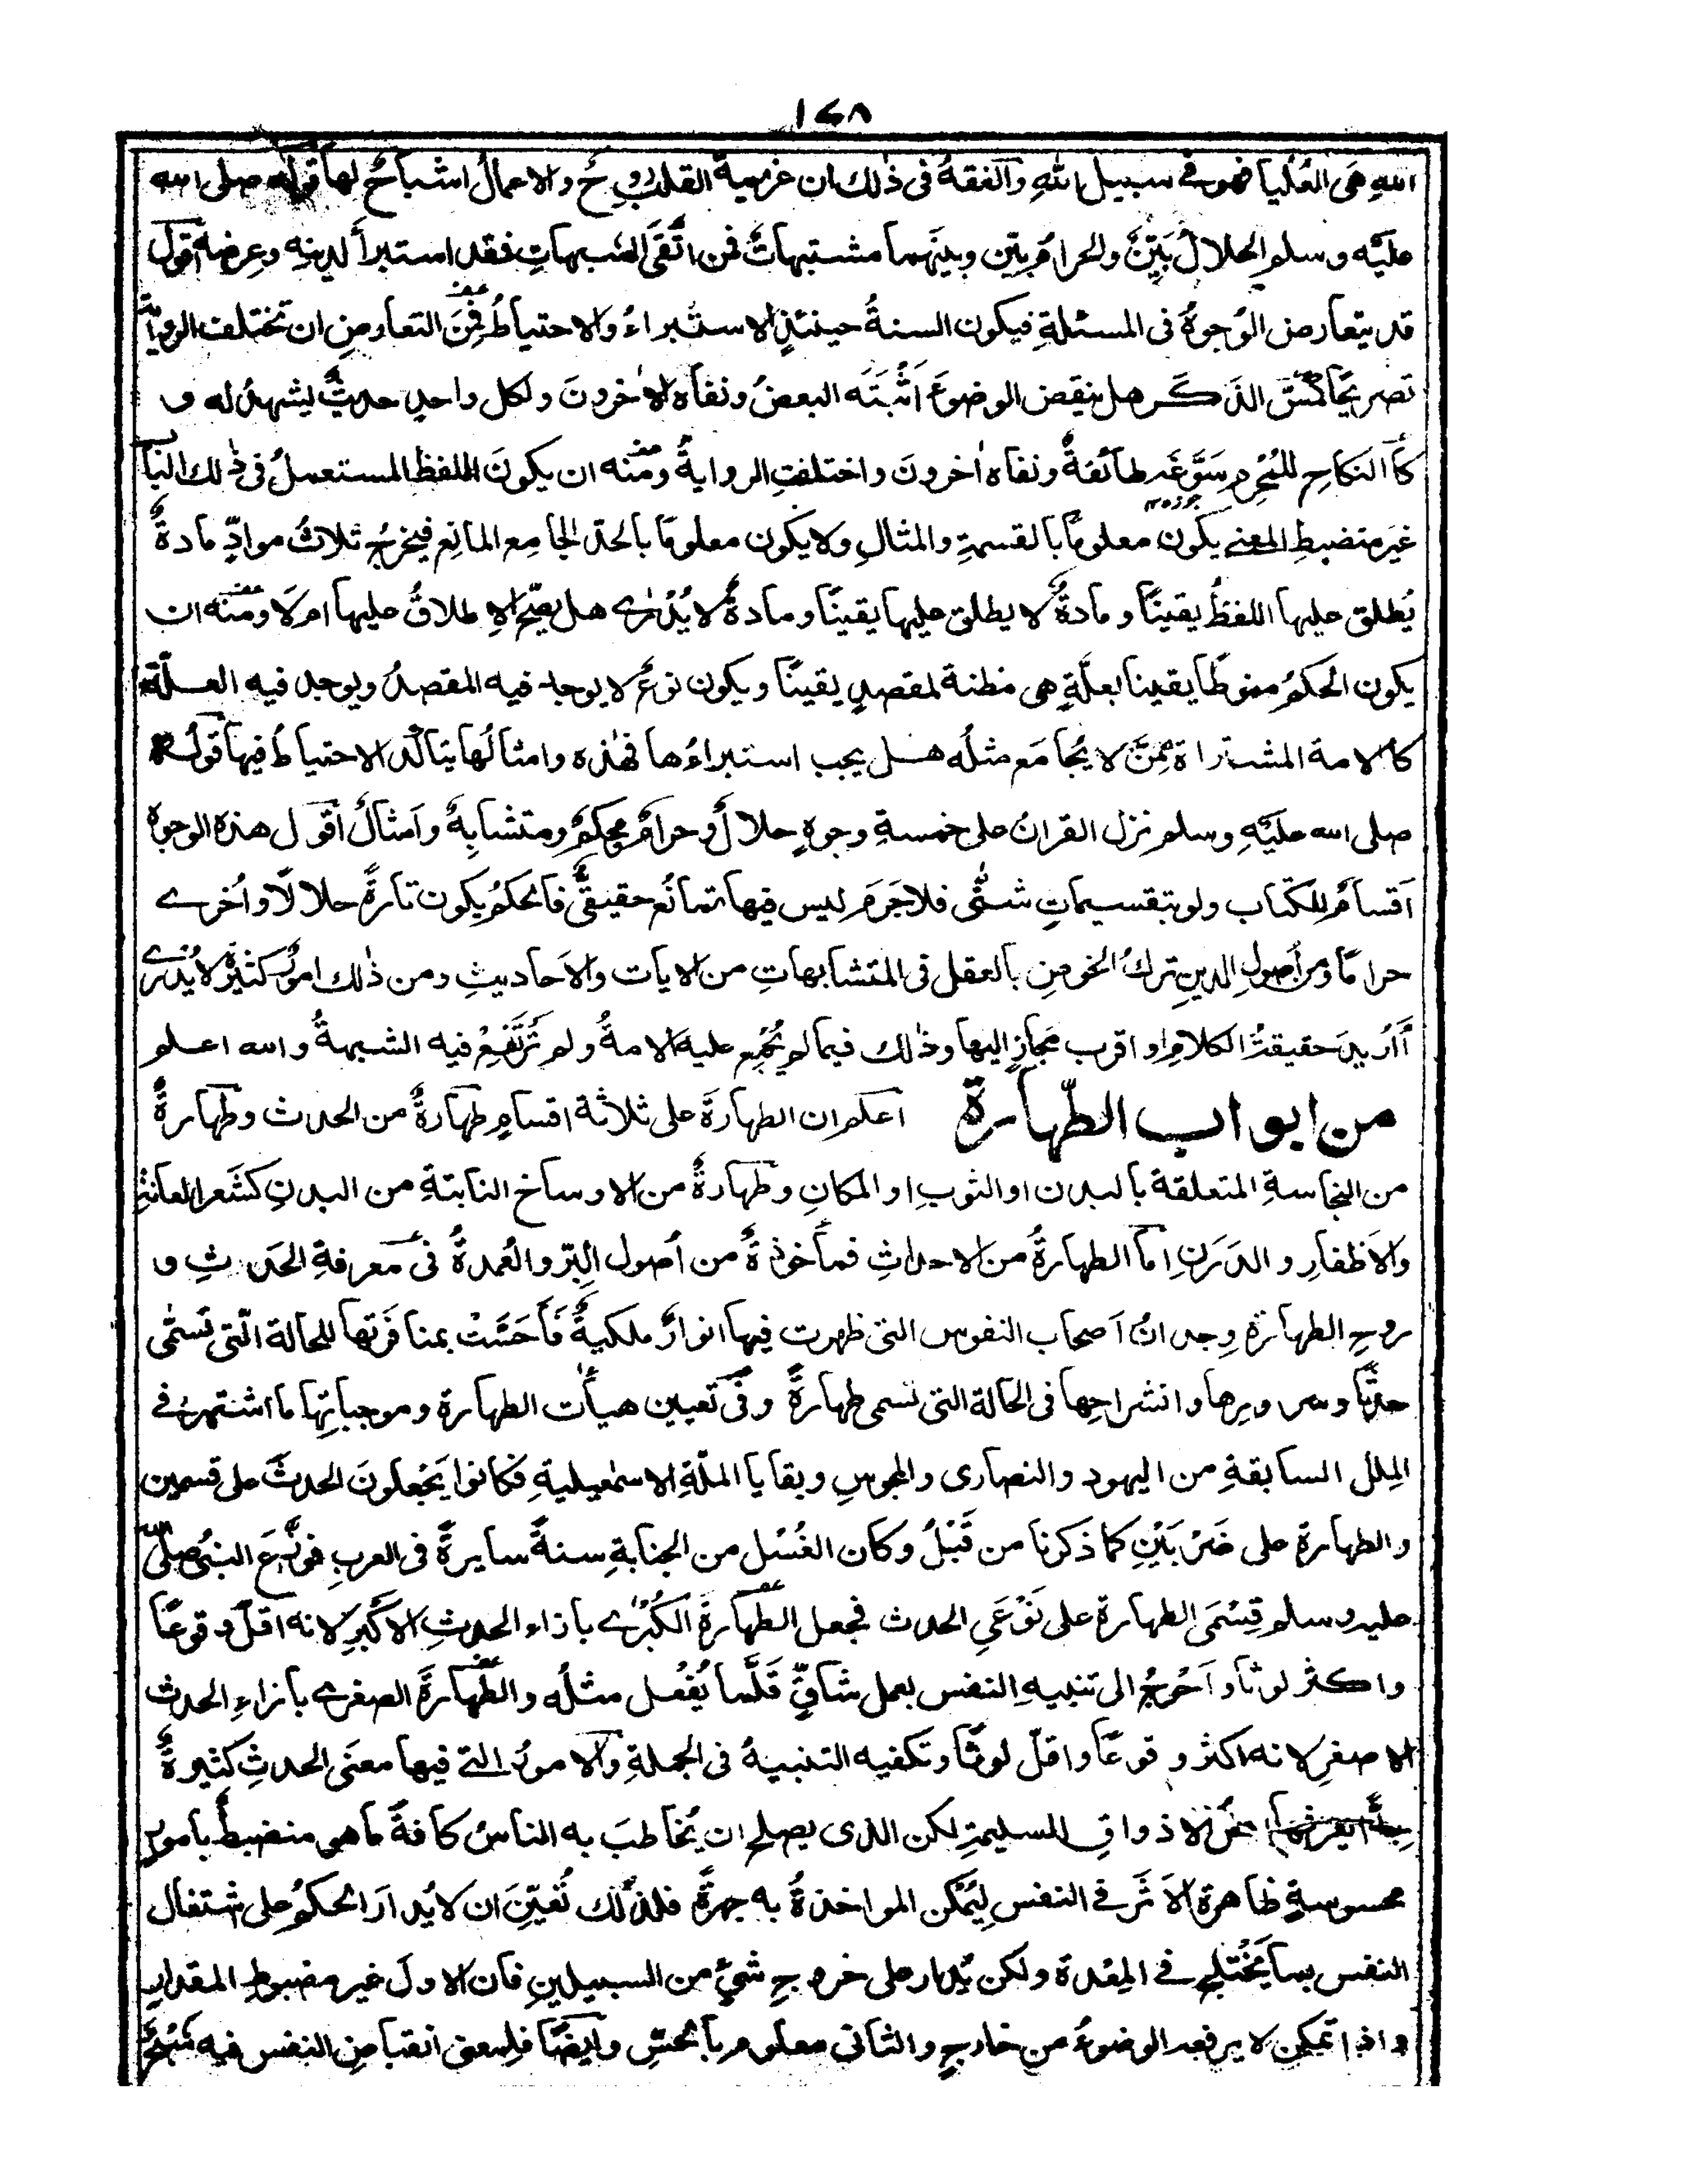 ١٧٨
الله هَى العُليا فهو فے سبيل اللهِ والفقهُ فى ذٰلك ان عزيمة القلب روحٌ والاعمالُ اشباحٌ لها قوله صلى الله
عليْه وسلم الحلالُ بَيِّنٌ والحرامُ بيّن وبينَهما مشتبهاتٌ فمن اتَّقَى الشبهاتِ فقد استبرأ لدينِه وعِرضِه اقول
قد يتعارض الوُجوهُ فى المسئلةِ فيكون السنةُ حينئذٍ الاستبراءُ والاحتياطُ فمِنَ التعارضِ ان تختلف الروايةُ
تصريحًا كمسِّ الذَكَر هل ينقض الوضوءَ اَثْبَتَه البعضُ ونفاه الاٰخرونَ ولكل واحدٍ حديثٌ يشهدُ له و
كالنكاحِ للمُحْرِم سَوَّغَه طائفةٌ ونفاه اٰخرونَ واختلفتِ الروايةُ ومنْه ان يكونَ اللفظُ المستعملُ فى ذٰلك الباب
غيرَ منضبطِ المعنے يكون معلومًا بالقسمةِ والمثالِ ولا يكون معلومًا بالحدّ الجامعِ المانِع فيخرجُ ثلاثُ موادٍّ مادةٌ
يُطلق عليها اللفظُ يقينًا ومادةٌ لا يطلق عليها يقينًا ومادةٌ لا يُدْرٰے هل يصحّ الاِطلاقُ عليها ام لَا ومنْه ان
يكون الحكمُ منوطًا يقينا بعلّةٍ هى مظنة لمقصدٍ يقينًا ويكون نوعٌ لا يوجد فيه المقصدُ ويوجد فيه العلّة
كالامة المشتراة مِمَّن لا يُجامَع مثلُه هل يجب استبراءُها فهٰذه وامثالُها يتاكّد الاحتياطُ فيها قولُه
صلى الله عليْهِ وسلم نزل القرانُ على خمسةِ وجوهٍ حلالٌ وحرامٌ ومحكمٌ ومتشابِهٌ واَمثالٌ اقول هذه الوجوهُ
اَقسامٌ للكتاب ولو بتقسيماتٍ شتّٰى فلا جَرَمَ ليس فيها تمانُع حقيقىٌّ فالحكمُ يكون تارةً حلالًا واُخرے
حرامًا ومن اُصولِ الدينِ تركُ الخوضِ بالعقل فى المتشابهاتِ من الايات والاَحاديثِ ومن ذٰلك امورٌ كثيرةٌ لا يُدْرٰے
أاُريدَ حقيقةُ الكلامِ او اقرب مَجازٍ اليها وذٰلك فيما لم يُجْمِع عليه الامةُ ولم تَرْتَفِعْ فيه الشبهةُ والله اعلم
من ابواب الطّهارة اعلم ان الطهارةَ على ثلاثة اقسامٍ طهارةٌ من الحدث وطهارةٌ
من النجاسةِ المتعلقة بالبدن او الثوبِ او المكانِ وطهارةٌ من الاوساخ النابتةِ من البدنِ كشَعرِ العانةِ
والاَظفارِ والدَرَنِ اما الطهارةُ من الاحداثِ فمأخوذةٌ من اُصول البِرّ والعُمدةُ فى معرفةِ الحَدَثِ و
روحِ الطهارةِ وِجدانُ اَصحاب النفوسِ التى ظهرت فيها انوارٌ ملكيةٌ فَأَحَسَّتْ بمنافَرتها للحالة الّتى تسمّٰى
حدثًا وسرورِها وانشراحِها فى الحالة التى تسمى طهارةً وفى تعيين هيأٰت الطهارة وموجباتِها ما اشتهر فے
المِلل السابقةِ من اليهود والنصارى والمجوسِ وبقايا الملّةِ الاسمٰعيليةِ فكانوا يَجْعلونَ الحدثَ على قسمين
والطهارةَ على ضَرْبَيْنِ كما ذكرنا من قَبْلُ وكان الغُسْل من الجنابةِ سنةً سايرةً فى العربِ فوزَّعَ النبىُ صلى الله
عليه وسلم قِسْمَىِ الطهارة على نَوْعَىِ الحدث فجعل الطهارةَ الكُبْرٰے بازاء الحدثِ الاكبرِ لانه اقلّ وقوعًا
واكثر لوثًا واَحْوَجُ الى تنبيهِ النفس بعملٍ شاقٍّ قَلَّما يُفْعل مثلُه والطَّهارةَ الصغرے بازاءِ الحدث
الاصغرِ لانه اكثر وقوعًا واقلّ لوثًا وتكفيه التنبيهُ فى الجملةِ والامورُ التے فيها معنَى الحدثِ كثيرةٌ
جدًّا يعرفها اهلُ الاذواقِ السليمةِ لكن الذى يصلح ان يُخاطَبَ به الناسُ كافةً ما هو منضبطٌ بامورٍ
محسوسةٍ ظاهرةِ الاَثَر فے النفس لِيُمْكن المواخذةُ به جهرةً فلذٰلك تُعيِّنَ ان لا يُدارَ الحكمُ على اشتغال
النفس بما يَخْتَلِجُ فے المِعْدة ولكن يُدار على خروجِ شئٍ من السبيلينِ فان الاولَ غير مضبوطِ المقدارِ
واذا تمكن لا يرفعه الوضوءُ من خارجٍ والثانى معلوم بالحسّ وايضًا فلمعنى انقباضِ النفس فيه شبحٌ